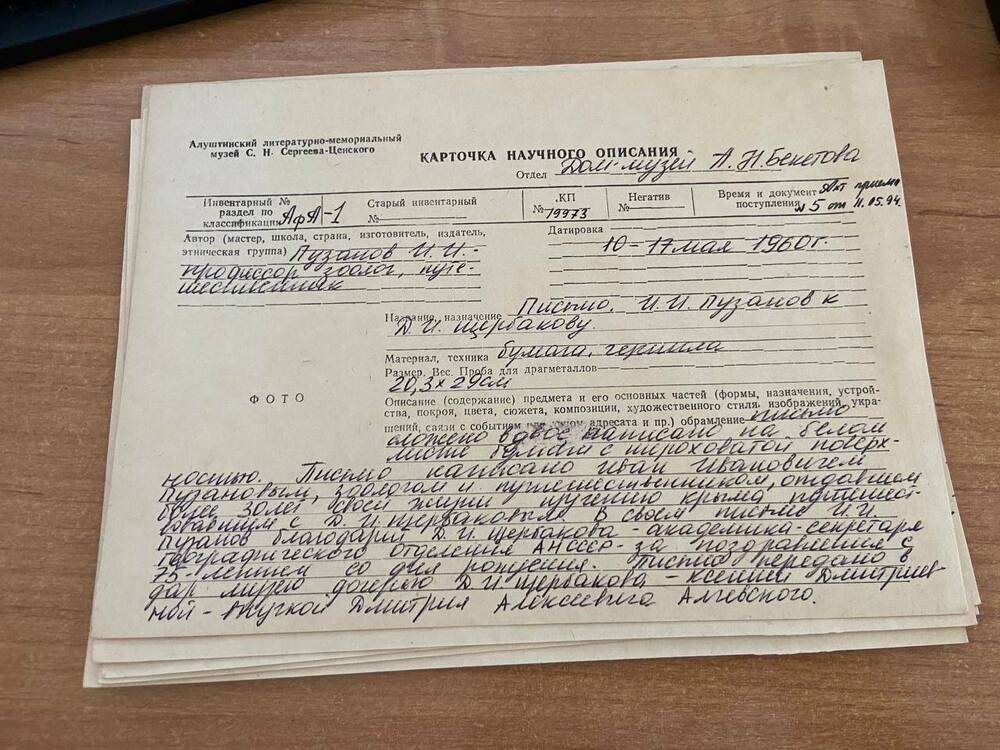 Алуштинский литературно-мемориальный
музей С. Н. Сергеева-Ценского
КАРТОЧКА НАУЧНОГО ОПИСАНИЯ
Отдел Дом-музей А.Н.Бекетова
Инвентарный №
раздел по
классификации АфА-1
Старый инвентарный
№
.КП
№ 19973
Негатив
№
Время и документ Акт приема
поступления № 5 от 11.05.94.
Автор (мастер, школа, страна, изготовитель, издатель,
этническая группа) Пузанов И.И.-
профессор зоолог, путе-
шественник
Датировка
10-17 мая 1960г.
Название, назначение Письмо. И.И. Пузанов к
Д.И. Щербакову.
Материал, техника бумага, чернила
Размер. Вес. Проба для драгметаллов
20,3 х 29см
ФОТО
Описание (содержание) предмета и его основных частей (формы, назначения, устрой-
ства, покроя, цвета, сюжета, композиции, художественного стиля, изображений, укра-
шений, связи с событием или лицом, адресата и пр.) обрамление письмо
сложено вдвое написано на белом
листе бумаги с шероховатой поверх-
ностью. Письмо написано Иван Ивановичем
Пузановым, зоологом и путешественником, отдавшем
более 30 лет своей жизни изучению Крыма
с Д.И. Щербаковым. В своем письме И.И.
Пузанов благодарит Д.И. Щербакова - академика-секретаря
географического отделения АН СССР - за поздравления с
75-летием со дня рождения. Письмо передано в
дар музею дочерью Д.И. Щербакова - Ксенией Дмитриев-
ной - внучкой Дмитрия Алексеевича Алчевского.